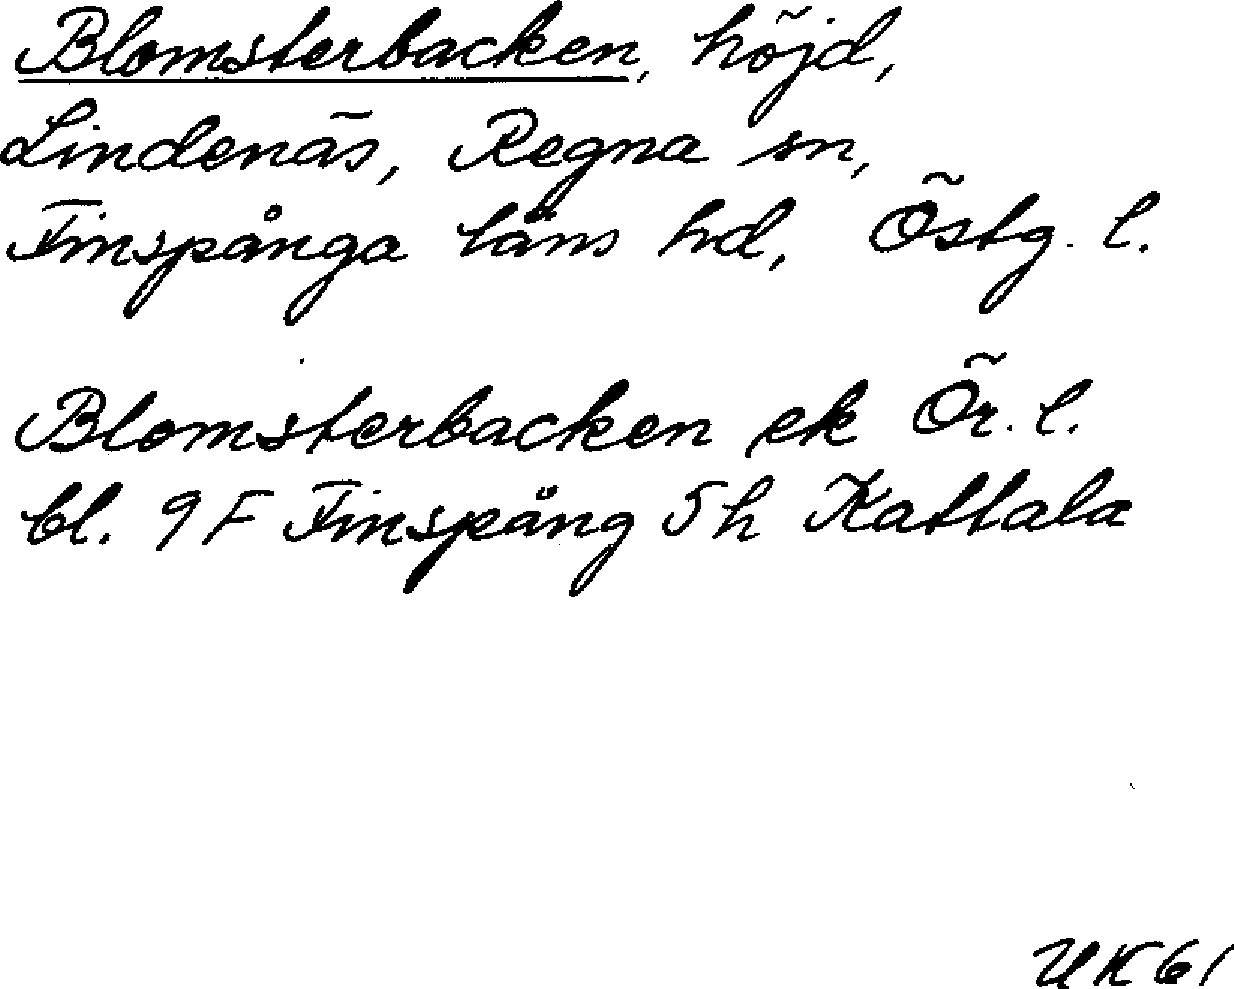 Blomsterbacken, höjd,
Lindenäs, Regna sn,
Finspånga läns hd, Östg. l.
Blomsterbacken ek Ör. l.
bl. 9 F Finspång 5 h Kattala
UK 61